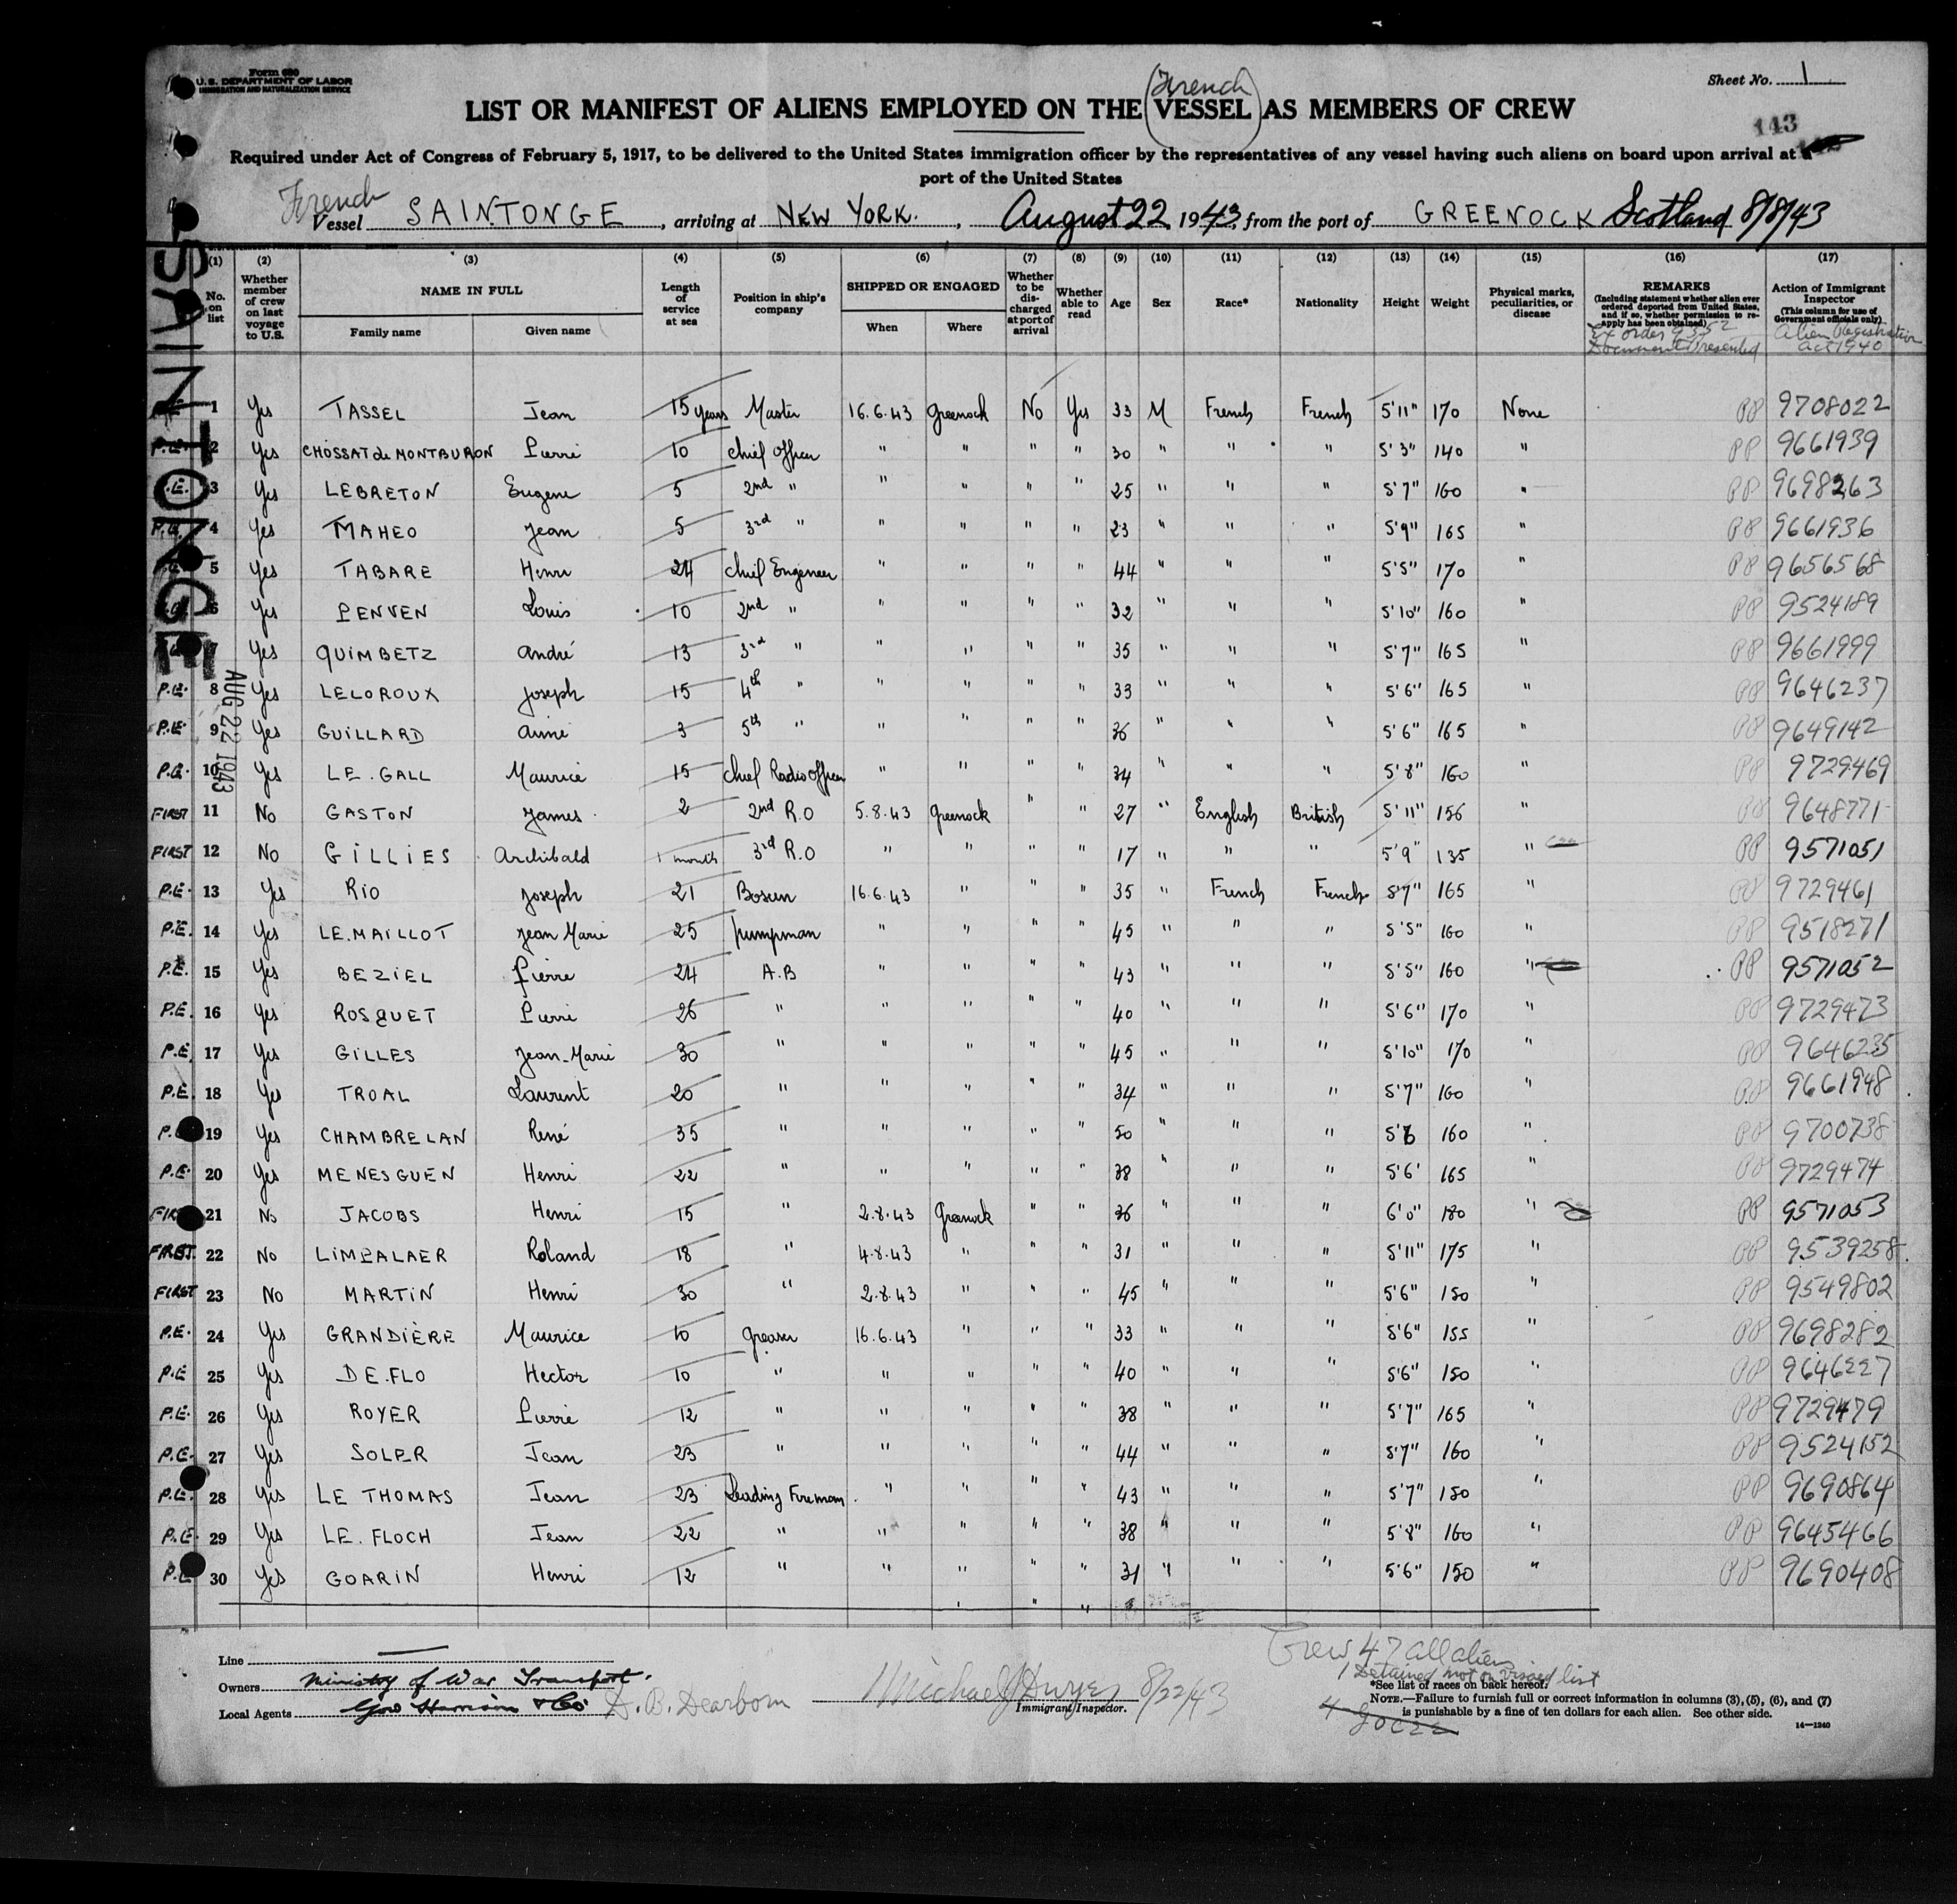 Form 680
U. S. DEPARTMENT OF LABOR
IMMIGRATION AND NATURALIZATION SERVICE
Sheet No. 1
French
LIST OR MANIFEST OF ALIENS EMPLOYED ON THE (VESSEL) AS MEMBERS OF CREW
143
Required under Act of Congress of February 5, 1917, to be delivered to the United States immigration officer by the representatives of any vessel having such aliens on board upon arrival at a
port of the United States
French
Vessel SAINTONGE, arriving at NEW YORK., August 22, 1943, from the port of GREENOCK Scotland 8/8/43
SAINTONGE
AUG 22 1943
(1) (2) (3) (4) (5) (6) (7) (8) (9) (10) (11) (12) (13) (14) (15) (16) (17)
No. on list
Whether member of crew on last voyage to U.S.
NAME IN FULL
Family name
Given name
Length of service at sea
Position in ship's company
SHIPPED OR ENGAGED
When
Where
Whether to be discharged at port of arrival
Whether able to read
Age
Sex
Race*
Nationality
Height
Weight
Physical marks, peculiarities, or disease
REMARKS
(Including statement whether alien ever ordered deported from United States, and if so, whether permission to reapply has been obtained)
Ex order 9352
Documents Presented
Action of Immigrant Inspector
(This column for use of Government officials only)
Alien Registration
Act 1940
1 Yes TASSEL Jean 15 years Master 16.6.43 Greenock No Yes 33 M French French 5'11" 170 None PP 9708022
P.E. 2 Yes CHOSSAT de MONTBURON Pierre 10 chief officer " " " " 30 " " " 5'3" 140 " PP 9661939
P.E. 3 Yes LEBRETON Eugene 5 2nd " " " " " 25 " " " 5'7" 160 " PP 9698263
P.E. 4 Yes MAHEO Jean 5 3rd " " " " " 23 " " " 5'9" 165 " PP 9661936
5 Yes TABARE Henri 24 Chief Engeneer " " " " 44 " " " 5'5" 170 " PP 9656568
6 Yes PENVEN Louis 10 2nd " " " " " 32 " " " 5'10" 160 " PP 9524189
7 Yes QUIMBETZ André 13 3rd " " " " " 35 " " " 5'7" 165 " PP 9661999
P.E. 8 Yes LELOROUX Joseph 15 4th " " " " " 33 " " " 5'6" 165 " PP 9646237
P.E. 9 Yes GUILLARD Aimé 3 5th " " " " " 36 " " " 5'6" 165 " PP 9649142
P.E. 10 Yes LE.GALL Maurice 15 Chief Radio Officer " " " " 34 " " " 5'8" 160 " PP 9729469
FIRST 11 No GASTON James 2 2nd R.O 5.8.43 Greenock " " 27 " English British 5'11" 156 " PP 9648771
FIRST 12 No GILLIES Archibald 1 month 3rd R.O " " " " 17 " " " 5'9" 135 " PP 9571051
P.E. 13 Yes RIO Joseph 21 Bosun 16.6.43 " " " 35 " French French 5'7" 165 " PP 9729461
P.E. 14 Yes LE.MAILLOT Jean Marie 25 pumpman " " " " 45 " " " 5'5" 160 " PP 9518271
P.E. 15 Yes BEZIEL Pierre 24 A.B " " " " 43 " " " 5'5" 160 " PP 9571052
P.E. 16 Yes ROSQUET Pierre 26 " " " " " 40 " " " 5'6" 170 " PP 9729473
P.E. 17 Yes GILLES Jean-Marie 30 " " " " " 45 " " " 5'10" 170 " PP 9646235
P.E. 18 Yes TROAL Laurent 20 " " " " " 34 " " " 5'7" 160 " PP 9661948
P. 19 Yes CHAMBRELAN René 35 " " " " " 50 " " " 5'6 160 " PP 9700738
P.E. 20 Yes MENESGUEN Henri 22 " " " " " 38 " " " 5'6' 165 " PP 9729474
FIRST 21 No JACOBS Henri 15 " 2.8.43 Greenock " " 36 " " " 6'0" 180 " PP 9571053
FIRST 22 No LIMPALAER Roland 18 " 4.8.43 " " " 31 " " " 5'11" 175 " PP 9539258
FIRST 23 No MARTIN Henri 30 " 2.8.43 " " " 45 " " " 5'6" 150 " PP 9549802
P.E. 24 Yes GRANDIÈRE Maurice 10 greaser 16.6.43 " " " 33 " " " 5'6" 155 " PP 9698282
P.E 25 Yes DE.FLO Hector 10 " " " " " 40 " " " 5'6" 150 " PP 9646227
P.E. 26 Yes ROYER Pierre 12 " " " " " 38 " " " 5'7" 165 " PP 9729479
P.E. 27 Yes SOLER Jean 23 " " " " " 44 " " " 5'7" 160 " PP 9524152
P.E. 28 Yes LE THOMAS Jean 23 Leading Fireman " " " " 43 " " " 5'7" 150 " PP 9690864
P.E. 29 Yes LE.FLOCH Jean 22 " " " " " 38 " " " 5'8" 160 " PP 9645466
P.E 30 Yes GOARIN Henri 12 " " " " " 31 " " " 5'6" 150 " PP 9690408
Crew 47 all aliens
1 Detained not on visaed list
Line
Owners Ministry of War Transport.
Local Agents Geo Harrison & Co D. B. Dearborn
Michael J Dwyer 8/22/43
Immigrant Inspector.
*See list of races on back hereof.
NOTE.—Failure to furnish full or correct information in columns (3), (5), (6), and (7)
is punishable by a fine of ten dollars for each alien. See other side.
14—1240